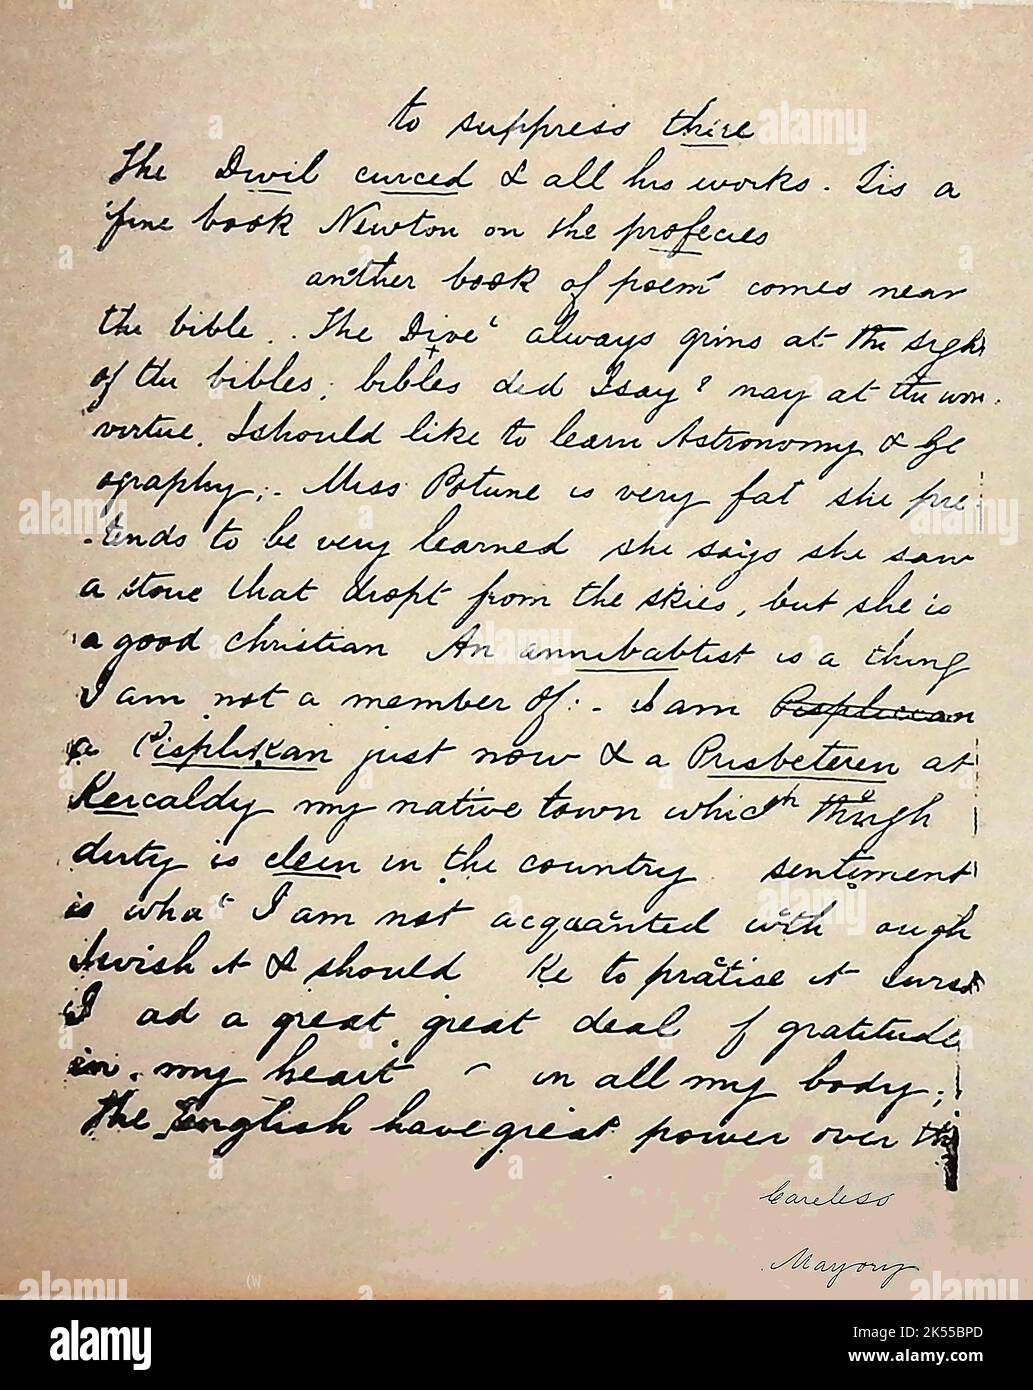 to suppress there
The Divil curced & all his works. Tis a
fine book Newton on the profecies
another book of poems comes near
the bible.. The Divel always grins at the sight
of the bibles; bibles did I say? nay at the word
virtue. I should like to learn Astronomy & Ge
ography;. Miss Potune is very fat she pre-
-tends to be very learned she says she saw
a stone that dropt from the skies, but she is
a good christian An annibabtist is a thing
I am not a member of:- I am Pisplican
a Pisplikan just now & a Prisbeteren at
Kercaldy my native town which though
dirty is clein in the country sentiment
is what I am not acquanted with ough
I wish it & should like to pratise it
I ad a great great deal of gratitude
in my heart in all my body;
The English have great power over the
Careless
Mayory
alamy
a
Image ID: 2K55BPD
www.alamy.com